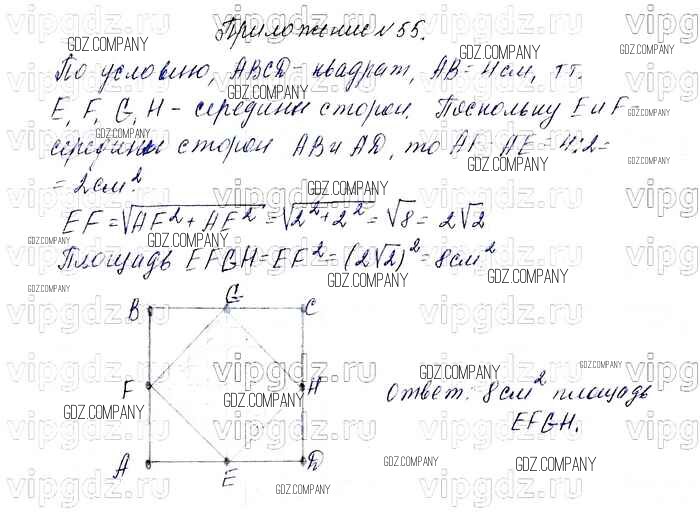 Приложение №55.
По условию, ABCD - квадрат, AB = 4 см, т.т.
E, F, G, H - середины сторон. Поскольку E и F -
середины сторон AB и AD, то AF = AE = 4:2=
= 2 см²
EF = √AF² + AE² = √2² + 2² = √8 = 2√2
Площадь EFGH = EF² = (2√2)² = 8 см²
B G C
F H
A E D
Ответ: 8 см² площадь
EFGH.
vipgdz.ru
GDZ.COMPANY